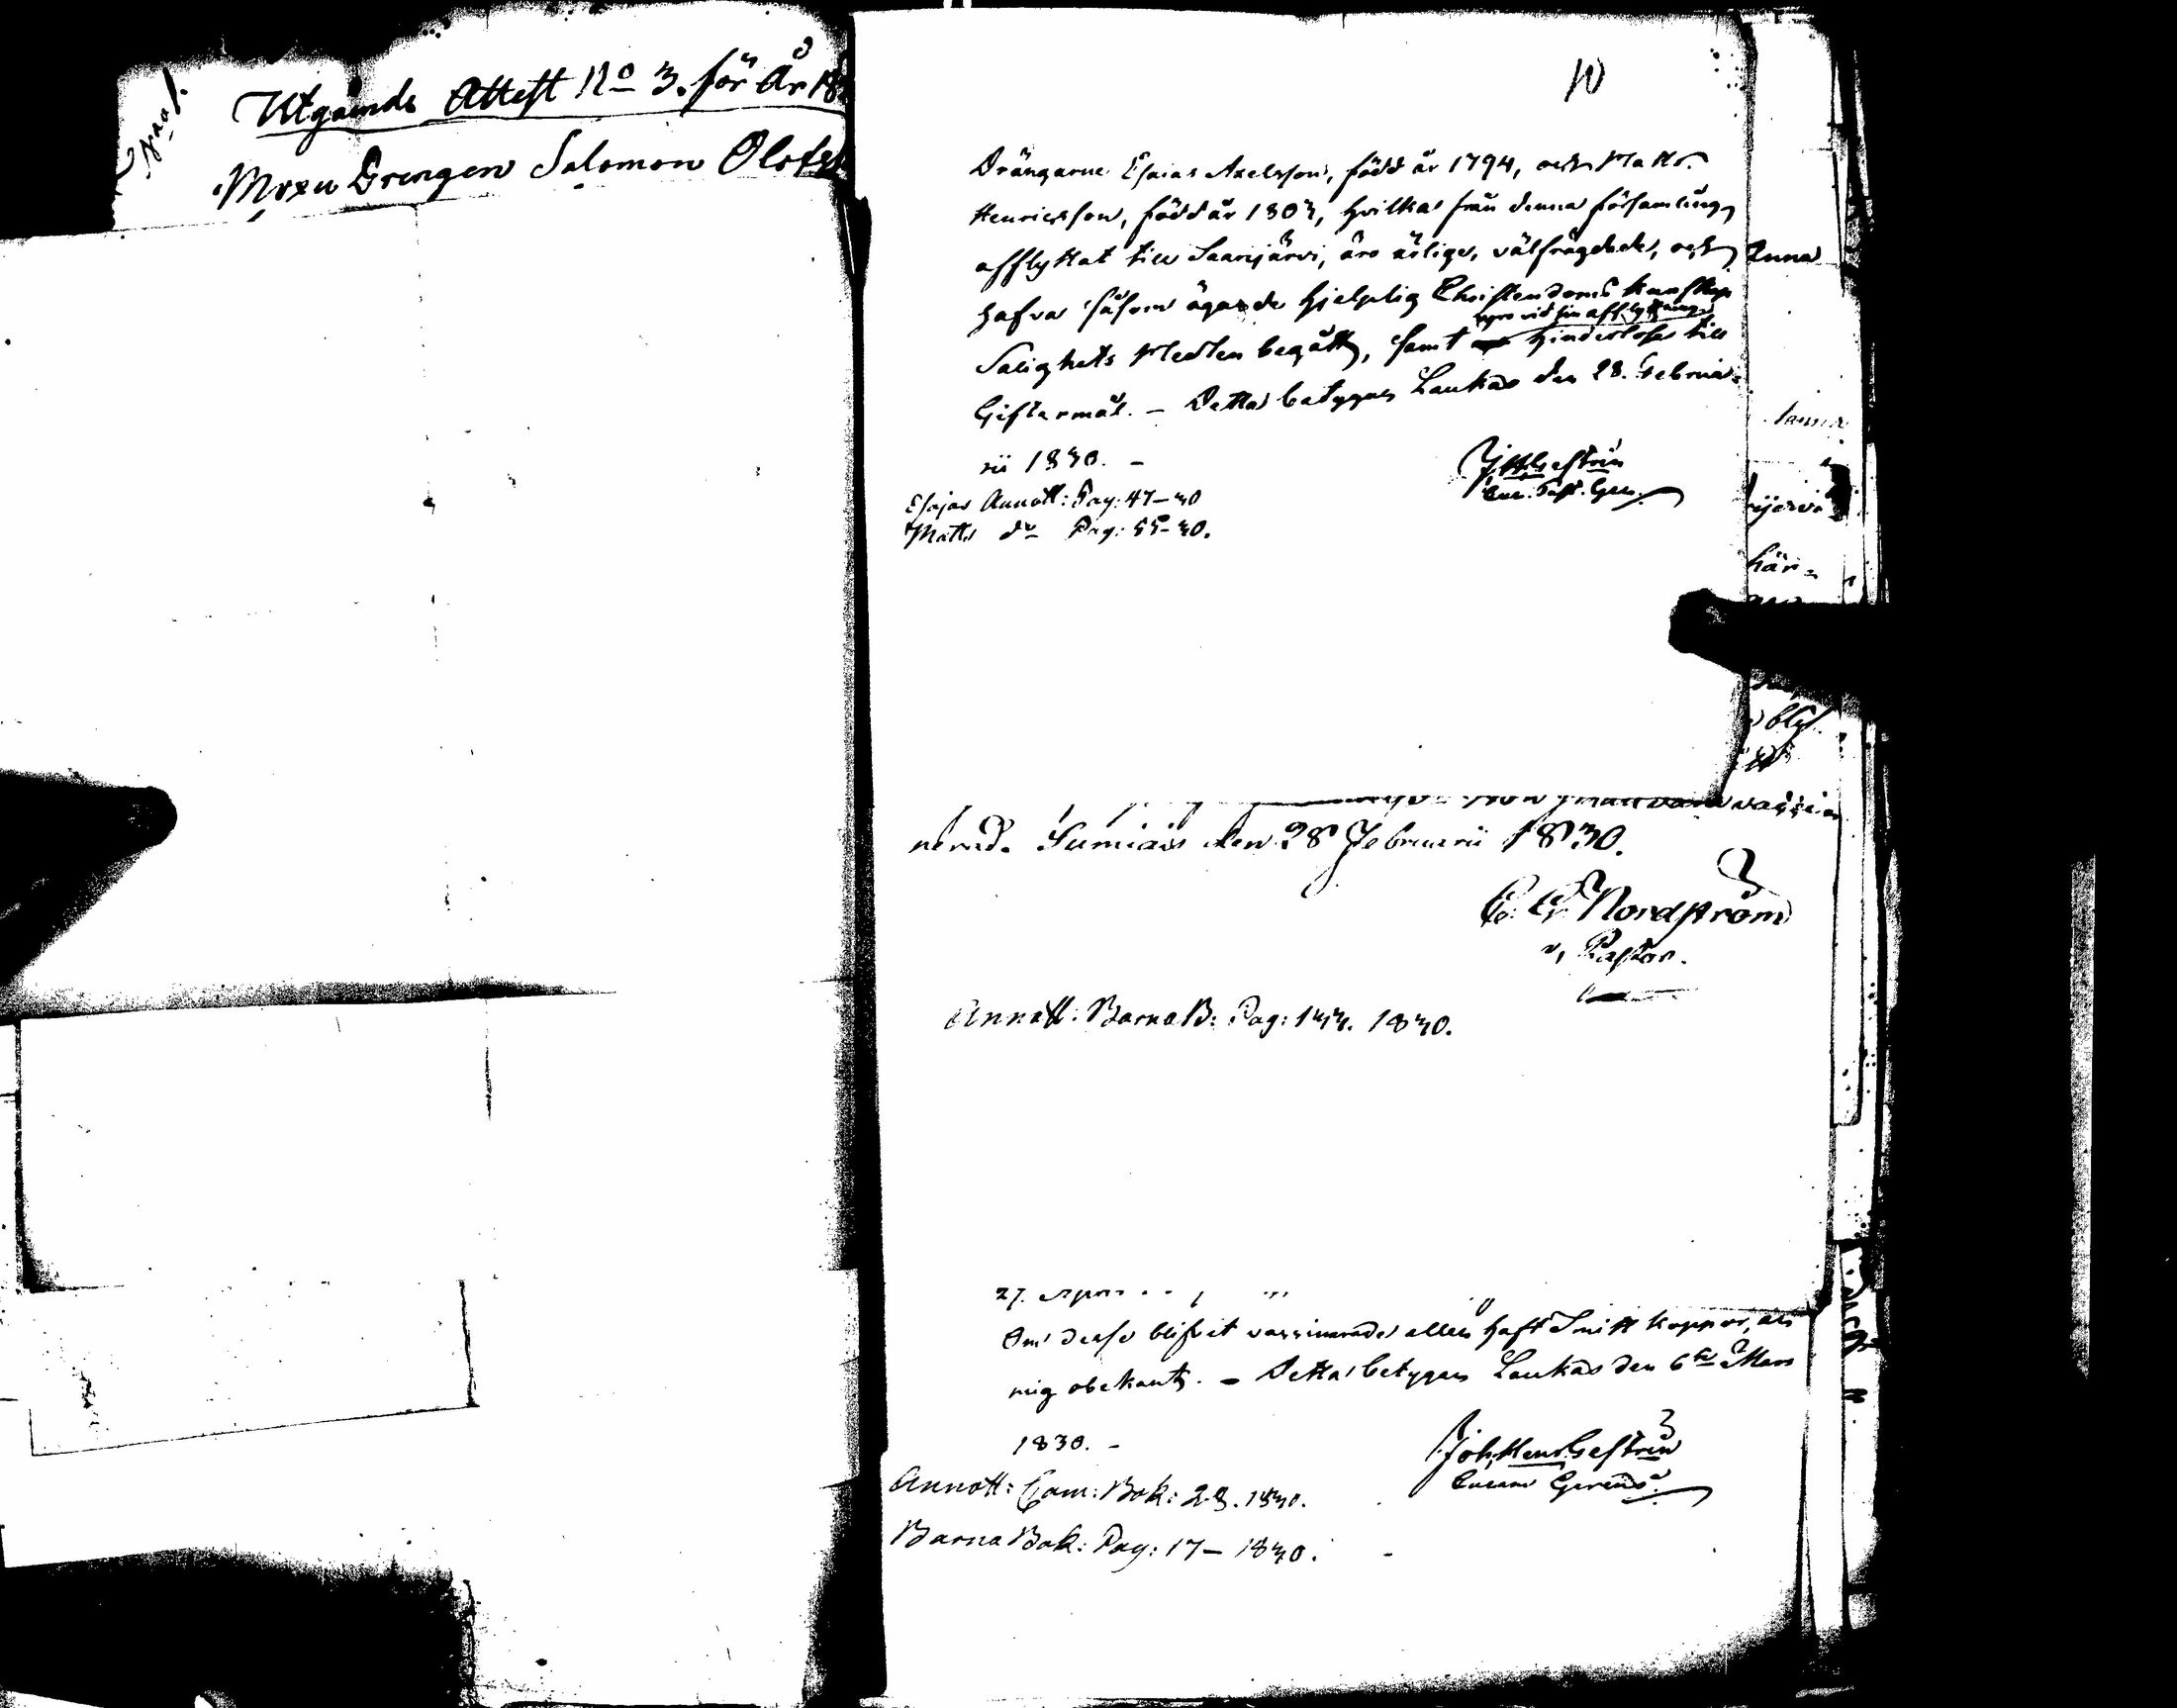 Utgående Attest No 3. för År 18
Mrxn Drengen Salomon Olofss
10
Drängarne Esaias Axelsson, född år 1794, och Matts
Henricsson, född år 1803, hvilka från denna församling
afflyttat till Saarijärvi, äro ärlige, välfrägdade, och
hafva såsom ägande hjelplig Christendoms kunskap
voro vid sin afflyttning
Salighets Medlen begått, samt hinderlöse till
Giftermål. – Detta betygas Laukas den 28. Februa-
rii 1830. –
JHGestrin
Cur. Past. Ger.
Esajas Annott: Pag: 47–30
Matts do Pag: 55–30.
Anna
här-
blif
nerad. Sumiais den 28 Februarii 1830.
C. G. Nordström
v, Pastor.
Annott: Barna B: Pag: 133. 1830.
27.
Om desse blifvit vaccinerade eller haft Smittkoppor, är
mig obekant. – Detta betygas Laukas den 6te Mars
1830. –
Joh. Henr. Gestrin
Curam Gerens.
Annott: Com: Bok: 23. 1830.
Barna Bok: Pag: 17– 1830.